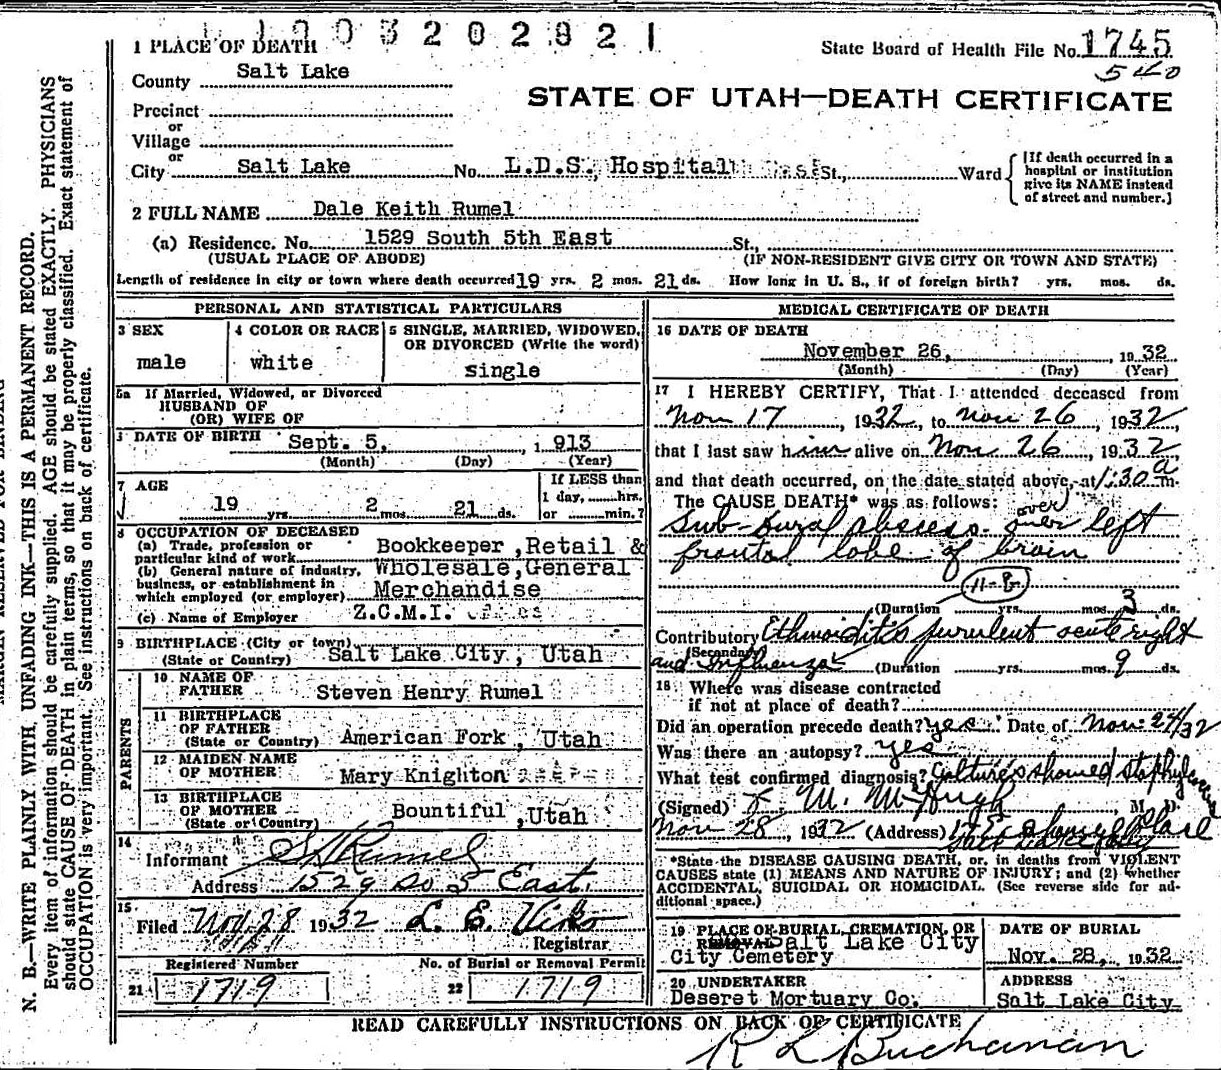 1003202921
1 PLACE OF DEATH
State Board of Health File No. 1745
540
County Salt Lake
STATE OF UTAH—DEATH CERTIFICATE
Precinct
or
Village
or
City Salt Lake No. L.D.S. Hospital St., Ward
[If death occurred in a
hospital or institution
give its NAME instead
of street and number.]
2 FULL NAME Dale Keith Rumel
(a) Residence. No. 1529 South 5th East St.,
(USUAL PLACE OF ABODE) (IF NON-RESIDENT GIVE CITY OR TOWN AND STATE)
Length of residence in city or town where death occurred 19 yrs. 2 mos. 21 ds. How long in U. S., if of foreign birth? yrs. mos. ds.
PERSONAL AND STATISTICAL PARTICULARS
3 SEX
male
4 COLOR OR RACE
white
5 SINGLE, MARRIED, WIDOWED,
OR DIVORCED (Write the word)
single
5a If Married, Widowed, or Divorced
HUSBAND OF
(OR) WIFE OF
DATE OF BIRTH Sept. 5, 1913
(Month) (Day) (Year)
7 AGE
19 yrs. 2 mos. 21 ds.
If LESS than
1 day, hrs.
or min.?
8 OCCUPATION OF DECEASED
(a) Trade, profession or
particular kind of work Bookkeeper, Retail &
(b) General nature of industry, Wholesale, General
business, or establishment in
which employed (or employer) Merchandise
(c) Name of Employer Z.C.M.I.
9 BIRTHPLACE (City or town)
(State or Country) Salt Lake City, Utah
PARENTS
10 NAME OF
FATHER Steven Henry Rumel
11 BIRTHPLACE
OF FATHER
(State or Country) American Fork, Utah
12 MAIDEN NAME
OF MOTHER Mary Knighton
13 BIRTHPLACE
OF MOTHER
(State or Country) Bountiful, Utah
14
Informant S H Rumel
Address 1529 So 5 East.
15
Filed Nov. 28 1932 L. E. Viko
Registrar
Registered Number No. of Burial or Removal Permit
21 1719 22 1719
MEDICAL CERTIFICATE OF DEATH
16 DATE OF DEATH
November 26, 1932
(Month) (Day) (Year)
17 I HEREBY CERTIFY, That I attended deceased from
Nov 17, 1932, to Nov 26, 1932
that I last saw him alive on Nov 26, 1932,
and that death occurred, on the date stated above, at 1:30 a m.
The CAUSE DEATH* was as follows:
Sub-dural abscess over over left
frontal lobe of brain
11-B
(Duration yrs. mos. 3 ds.
Contributory Ethmoiditis purulent acute right
(Secondary)
and Influenza (Duration yrs. mos. 9 ds.
18 Where was disease contracted
if not at place of death?
Did an operation precede death? yes Date of Nov. 24/32
Was there an autopsy? yes
What test confirmed diagnosis? Cultures showed staphylococcus
(Signed) M. McHugh, M. D.
Nov 28, 1932 (Address)
*State the DISEASE CAUSING DEATH, or, in deaths from VIOLENT
CAUSES state (1) MEANS AND NATURE OF INJURY; and (2) whether
ACCIDENTAL, SUICIDAL OR HOMICIDAL. (See reverse side for ad-
ditional space.)
19 PLACE OF BURIAL, CREMATION, OR
REMOVAL Salt Lake City
City Cemetery
DATE OF BURIAL
Nov. 28, 1932
20 UNDERTAKER
Deseret Mortuary Co.
ADDRESS
Salt Lake City
READ CAREFULLY INSTRUCTIONS ON BACK OF CERTIFICATE
R L Buchanan
N. B.—WRITE PLAINLY WITH UNFADING INK—THIS IS A PERMANENT RECORD.
Every item of information should be carefully supplied. AGE should be stated EXACTLY. PHYSICIANS
should state CAUSE OF DEATH in plain terms, so that it may be properly classified. Exact statement of
OCCUPATION is very important. See instructions on back of certificate.